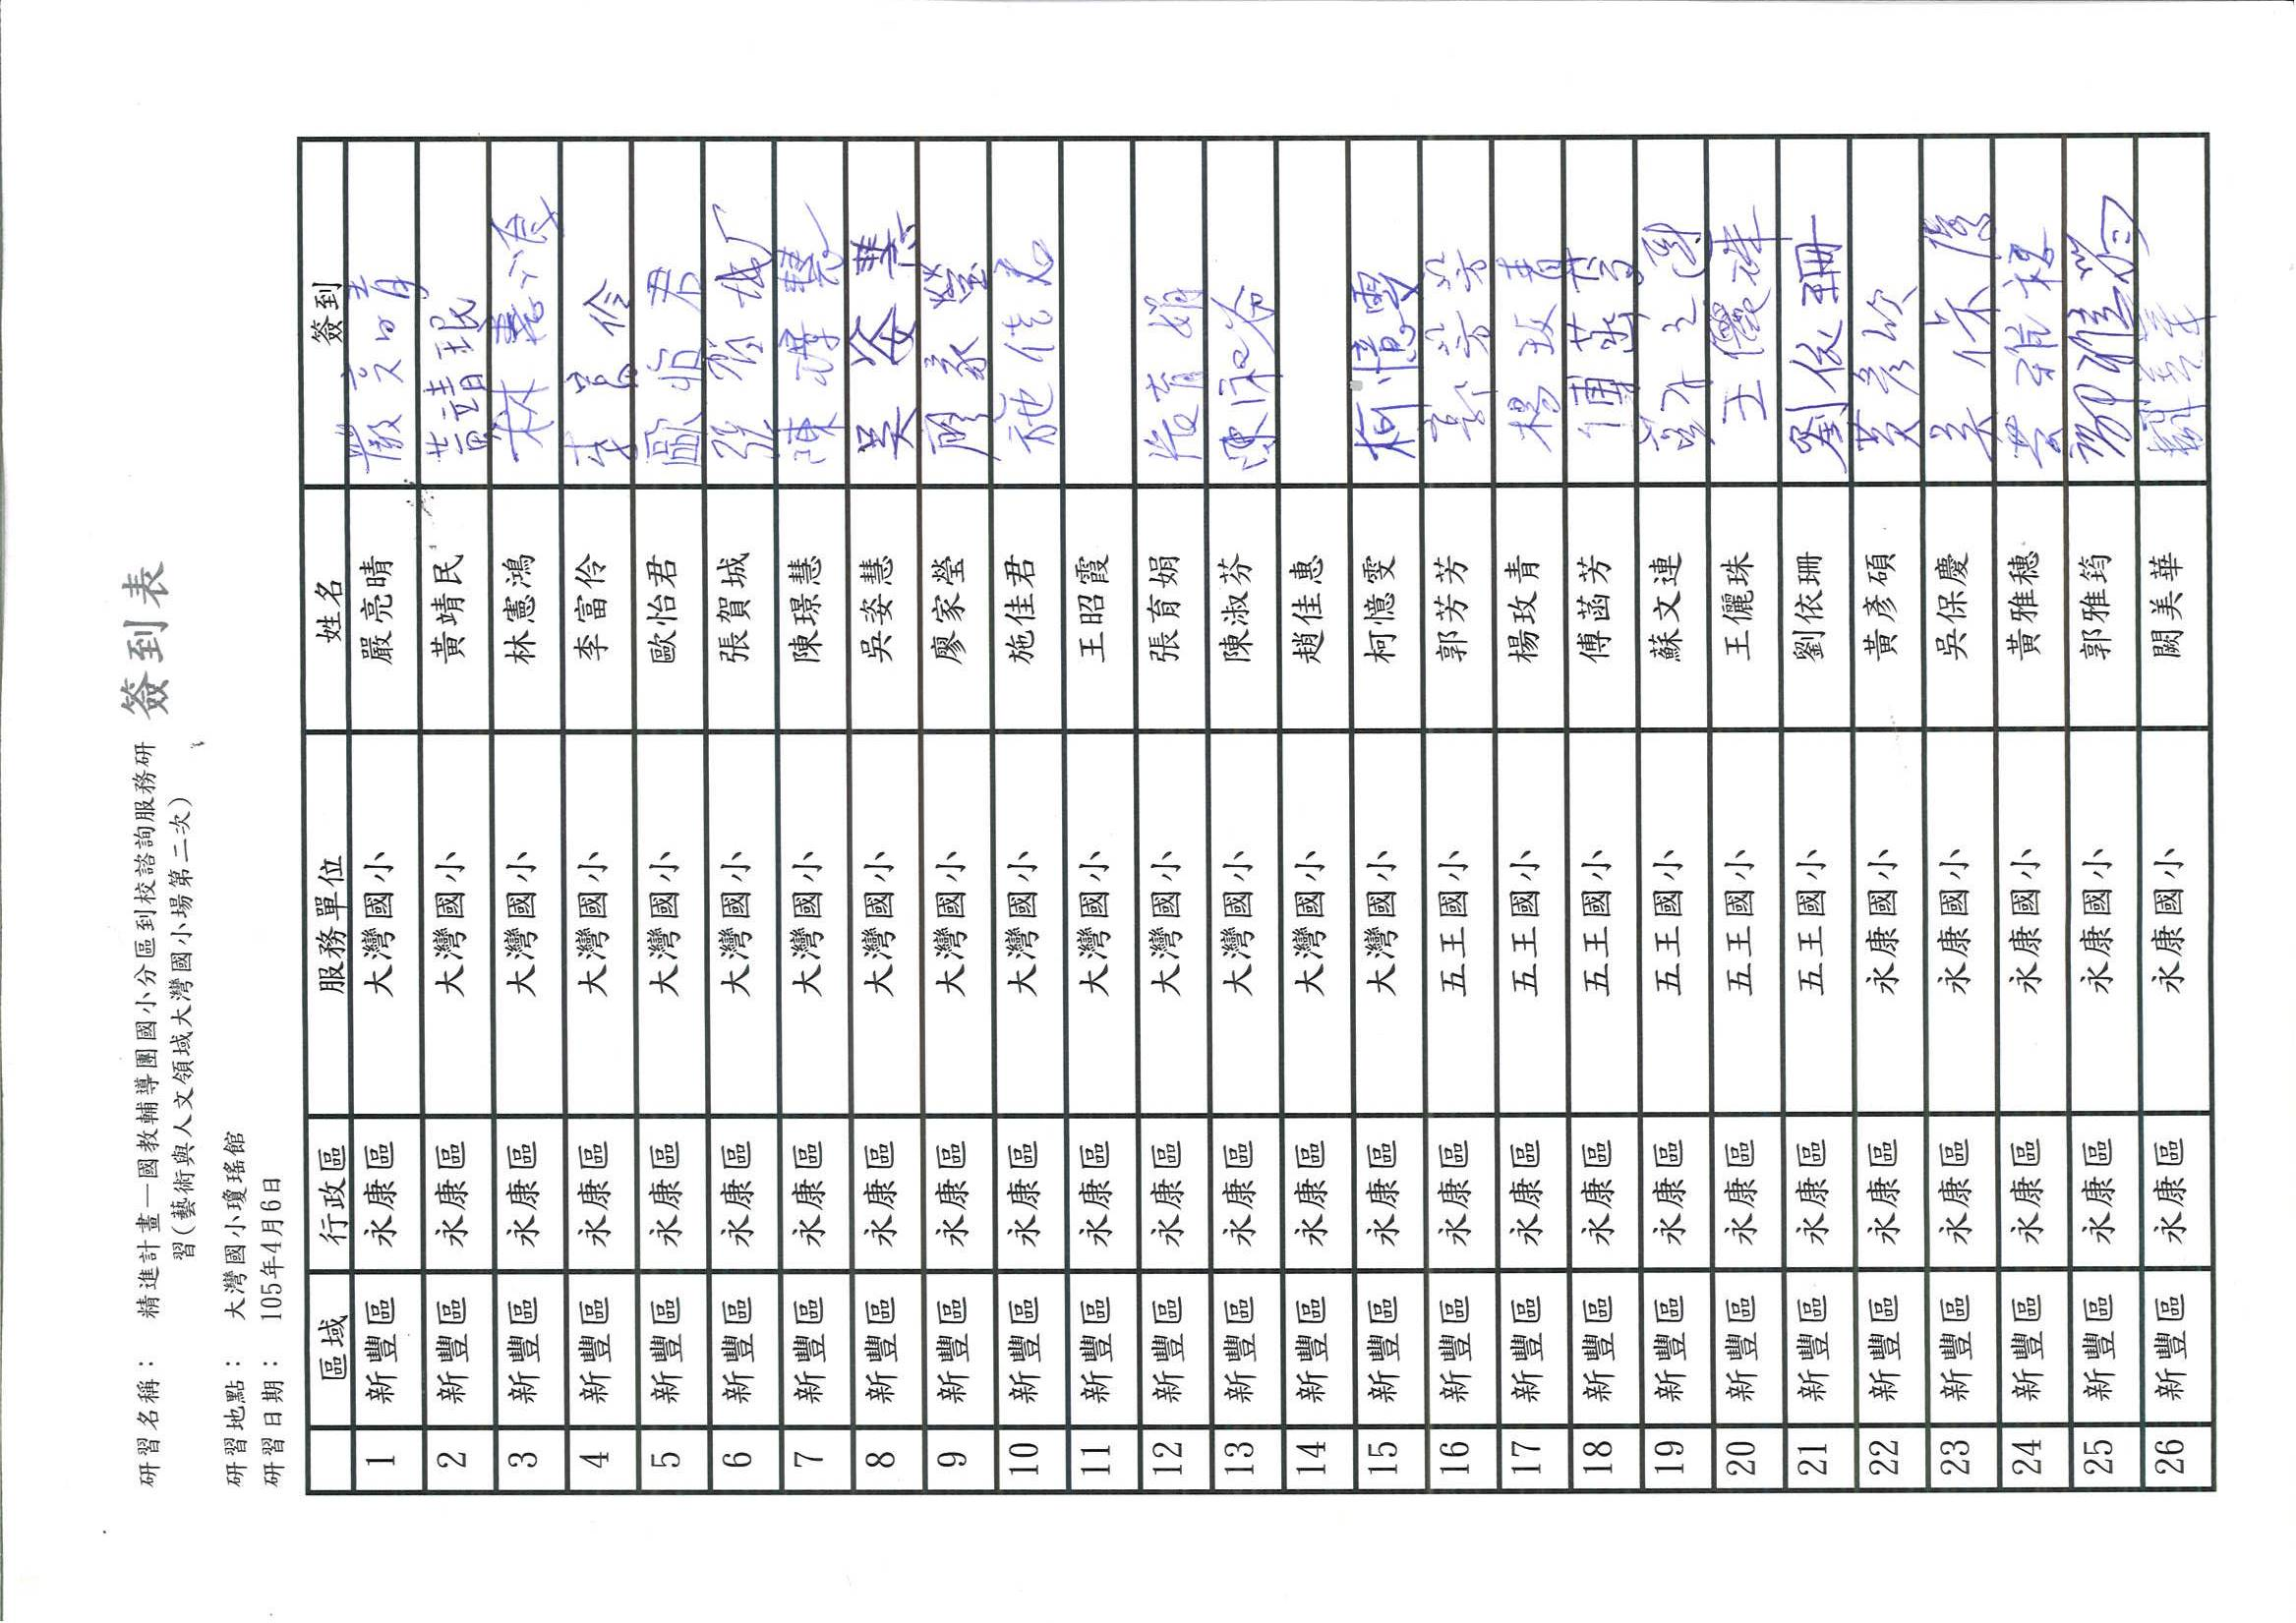 研習名稱： 精進計畫－國教輔導團國小分區到校諮詢服務研 簽到表
習(藝術與人文領域大灣國小場第二次)
研習地點： 大灣國小瓊瑤館
研習日期： 105年4月6日
區域 行政區 服務單位 姓名 簽到
1 新豐區 永康區 大灣國小 嚴亮晴 嚴亮晴
2 新豐區 永康區 大灣國小 黃靖民 黃靖珉
3 新豐區 永康區 大灣國小 林憲鴻 林憲鴻
4 新豐區 永康區 大灣國小 李富伶 李富伶
5 新豐區 永康區 大灣國小 歐怡君 歐怡君
6 新豐區 永康區 大灣國小 張賀城 張賀城
7 新豐區 永康區 大灣國小 陳璟慧 陳璟慧
8 新豐區 永康區 大灣國小 吳姿慧 吳姿慧
9 新豐區 永康區 大灣國小 廖家瑩 廖家瑩
10 新豐區 永康區 大灣國小 施佳君 施佳君
11 新豐區 永康區 大灣國小 王昭霞
12 新豐區 永康區 大灣國小 張育娟 張育娟
13 新豐區 永康區 大灣國小 陳淑芬 陳淑芬
14 新豐區 永康區 大灣國小 趙佳惠
15 新豐區 永康區 大灣國小 柯憶雯 柯憶雯
16 新豐區 永康區 五王國小 郭芳芳 郭芳芳
17 新豐區 永康區 五王國小 楊玫青 楊玫青
18 新豐區 永康區 五王國小 傅菡芳 傅菡芳
19 新豐區 永康區 五王國小 蘇文連 蘇文連
20 新豐區 永康區 五王國小 王儷珠 王儷珠
21 新豐區 永康區 五王國小 劉依珊 劉依珊
22 新豐區 永康區 永康國小 黃彥碩 黃彥碩
23 新豐區 永康區 永康國小 吳保慶 吳保慶
24 新豐區 永康區 永康國小 黃雅穗 黃雅穗
25 新豐區 永康區 永康國小 郭雅筠 郭雅筠
26 新豐區 永康區 永康國小 闕美華 闕美華